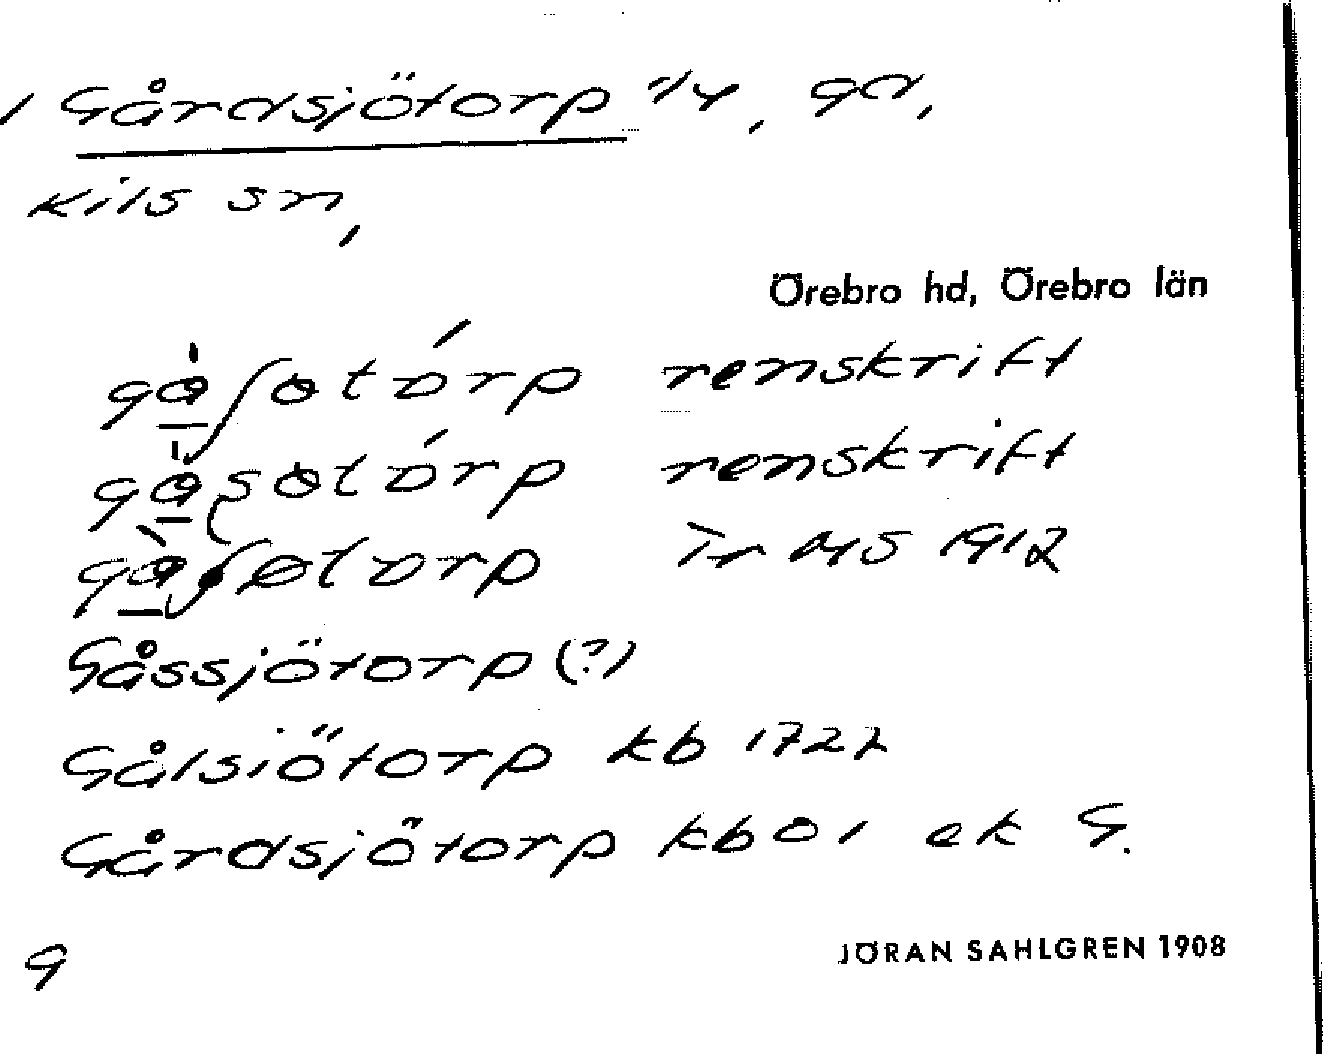 Gårdsjötorp 1/4, gd,
Kils sn,
Örebro hd, Örebro län
gåʃotórp renskrift
gåsotórp renskrift
gåʃotorp MS 1912
Gåssjötorp (?)
Gålsiötorp kb 1722
Gårdsjötorp kb 01 ek G.
9
JÖRAN SAHLGREN 1908